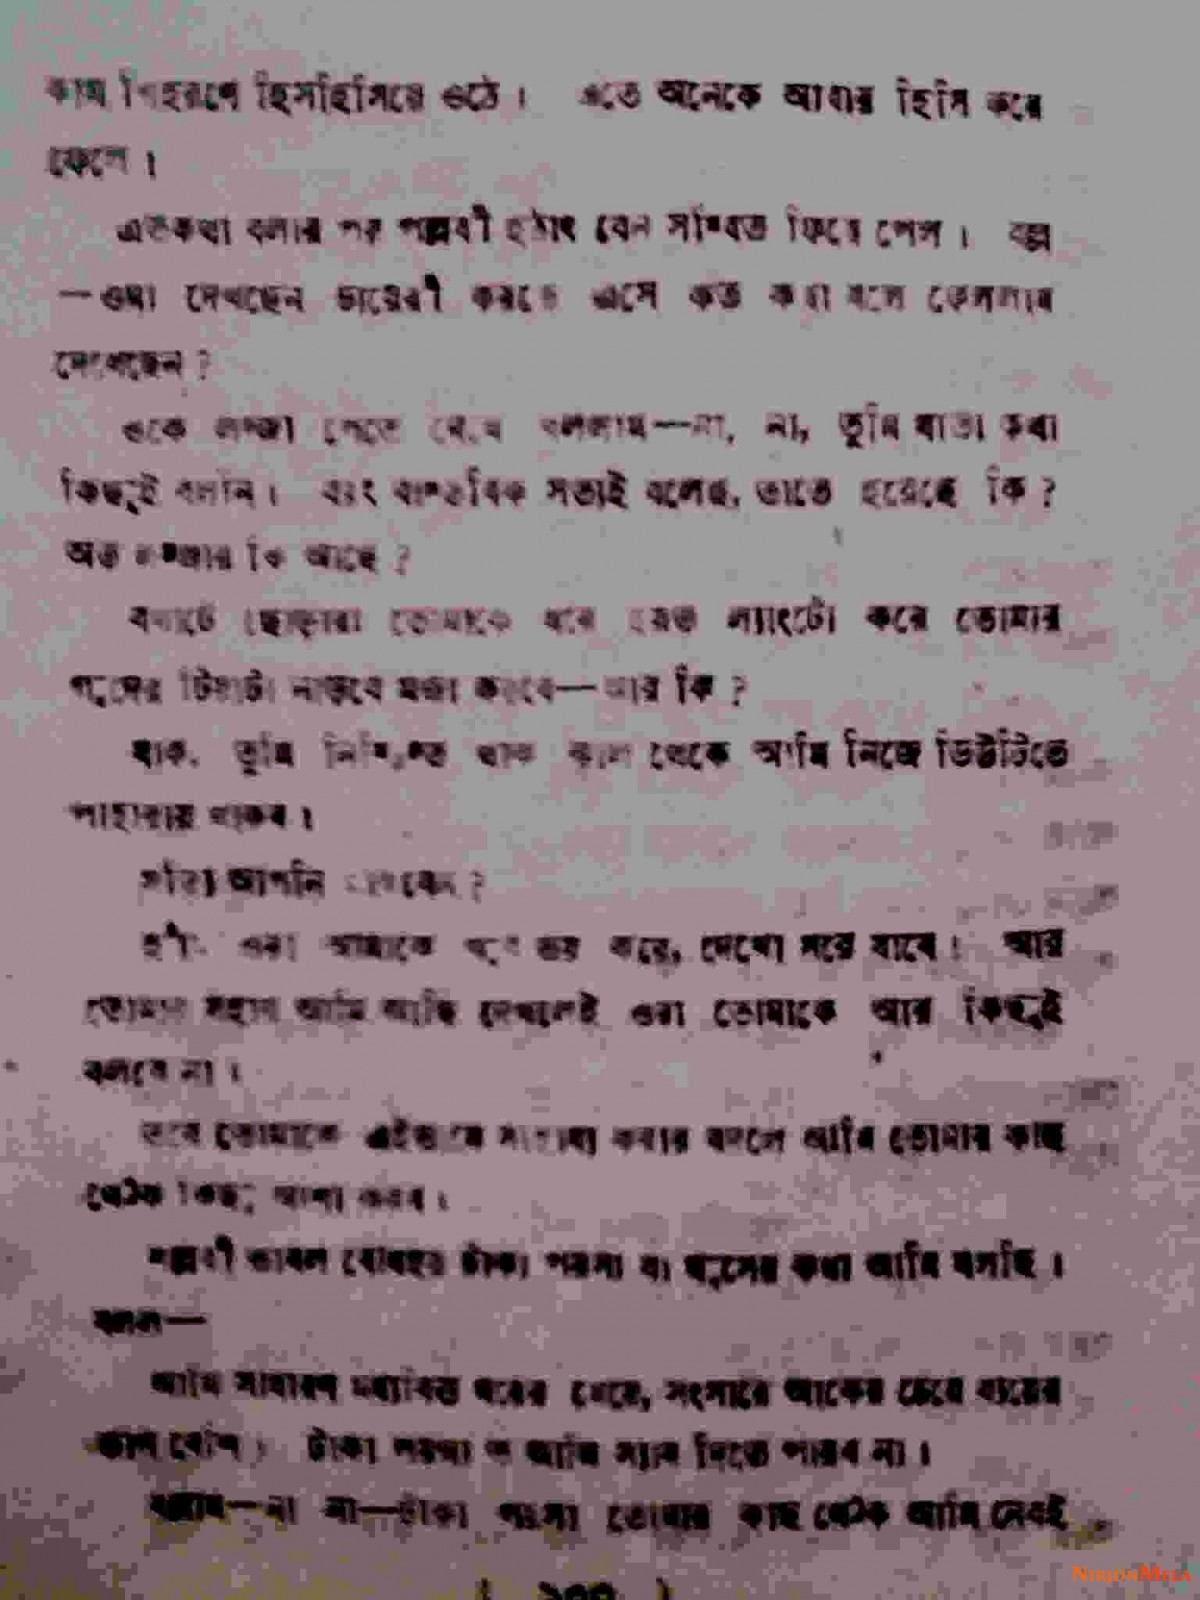 কাম শিহরণে হিসহিসিয়ে ওঠে। এতে অনেকে আবার হিসি করে
ফেলে।
এতকথা বলার পর পল্লবী হঠাৎ যেন সম্বিত ফিরে পেল।
—ওমা দেখছেন ডায়েরী করতে এসে কত কথা বলে ফেললাম
দেখেছেন?
ওকে লজ্জা পেতে দেখে বললাম—না, না, তুমি যাতা কথা
কিছুই বলনি। বরং বাস্তবিক সত্যই বলেছ, তাতে হয়েছে কি?
অত লজ্জার কি আছে?
বখাটে ছোকরারা তোমাকে ধরে হয়ত ল্যাংটো করে তোমার
নাড়বে মজা করবে—আর কি?
যাক, তুমি নিশ্চিন্ত থাক কাল থেকে আমি নিজে ডিউটিতে
পাহারায় থাকব।
সত্যি আপনি থাকবেন?
হ্যাঁ, ওরা আমাকে খুব ভয় করে, দেখো সরে যাবে। আর
তোমার সহায় আমি আছি দেখলেই ওরা তোমাকে আর কিছুই
বলবে না।
তবে তোমাকে এইভাবে সাহায্য করার বদলে আমি তোমার কাছ
থেকে কিছু আশা করব।
পল্লবী ভাবল বোধহয় টাকা পয়সা বা ঘুসের কথা আমি বলছি।
বলল—
আমি সাধারণ মধ্যবিত্ত ঘরের মেয়ে, সংসারে আয়ের চেয়ে ব্যয়ের
ভাগ বেশি। টাকা পয়সা ত আমি স্যার দিতে পারব না।
বল্লাম—না না—টাকা পয়সা তোমার কাছ থেকে আমি নেবই
NirjonMela